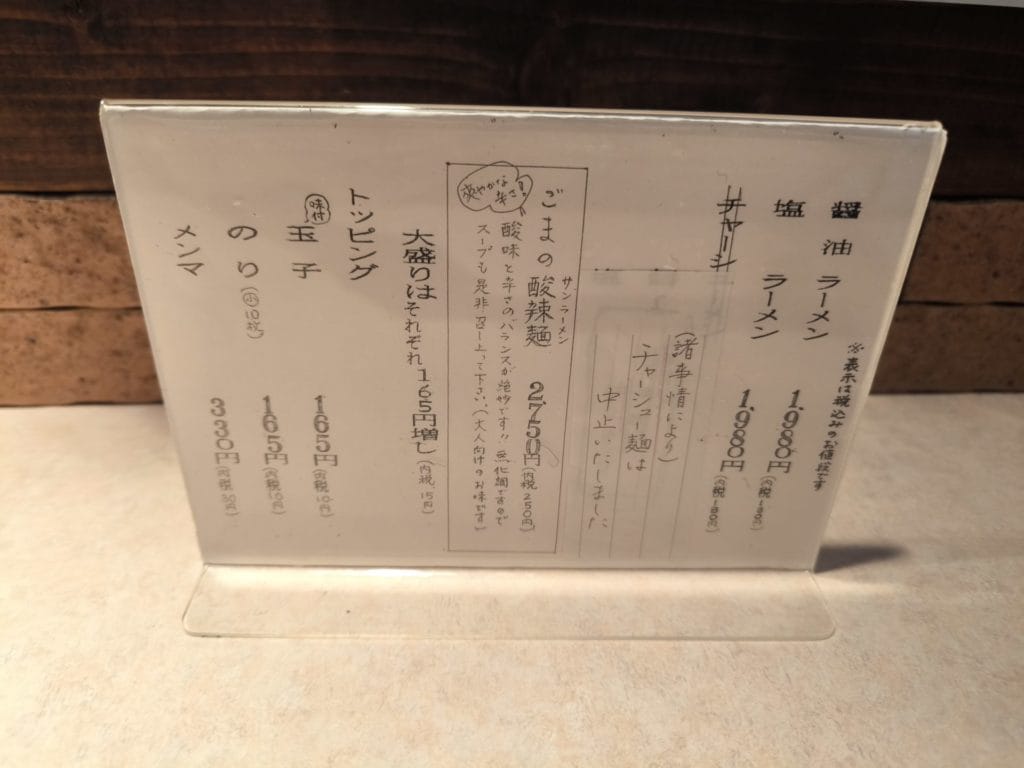 ※表示は税込みのお値段です
醤油ラーメン 1,980円(内税180円)
塩ラーメン 1,980円(内税180円)
チャーシ
(諸事情により)
チャーシュー麺は
中止いたしました
ごまの酸辣麺 サンラーメン 2,750円(内税250円)
爽やかな辛さ!!
酸味と辛さのバランスが絶妙です!!無化調ですので
スープも是非召し上って下さい。(大人向けのお味です)
大盛りはそれぞれ165円増し(内税15円)
トッピング
味付玉子 165円(内税10円)
のり(小10枚) 165円(内税10円)
メンマ 330円(内税30円)